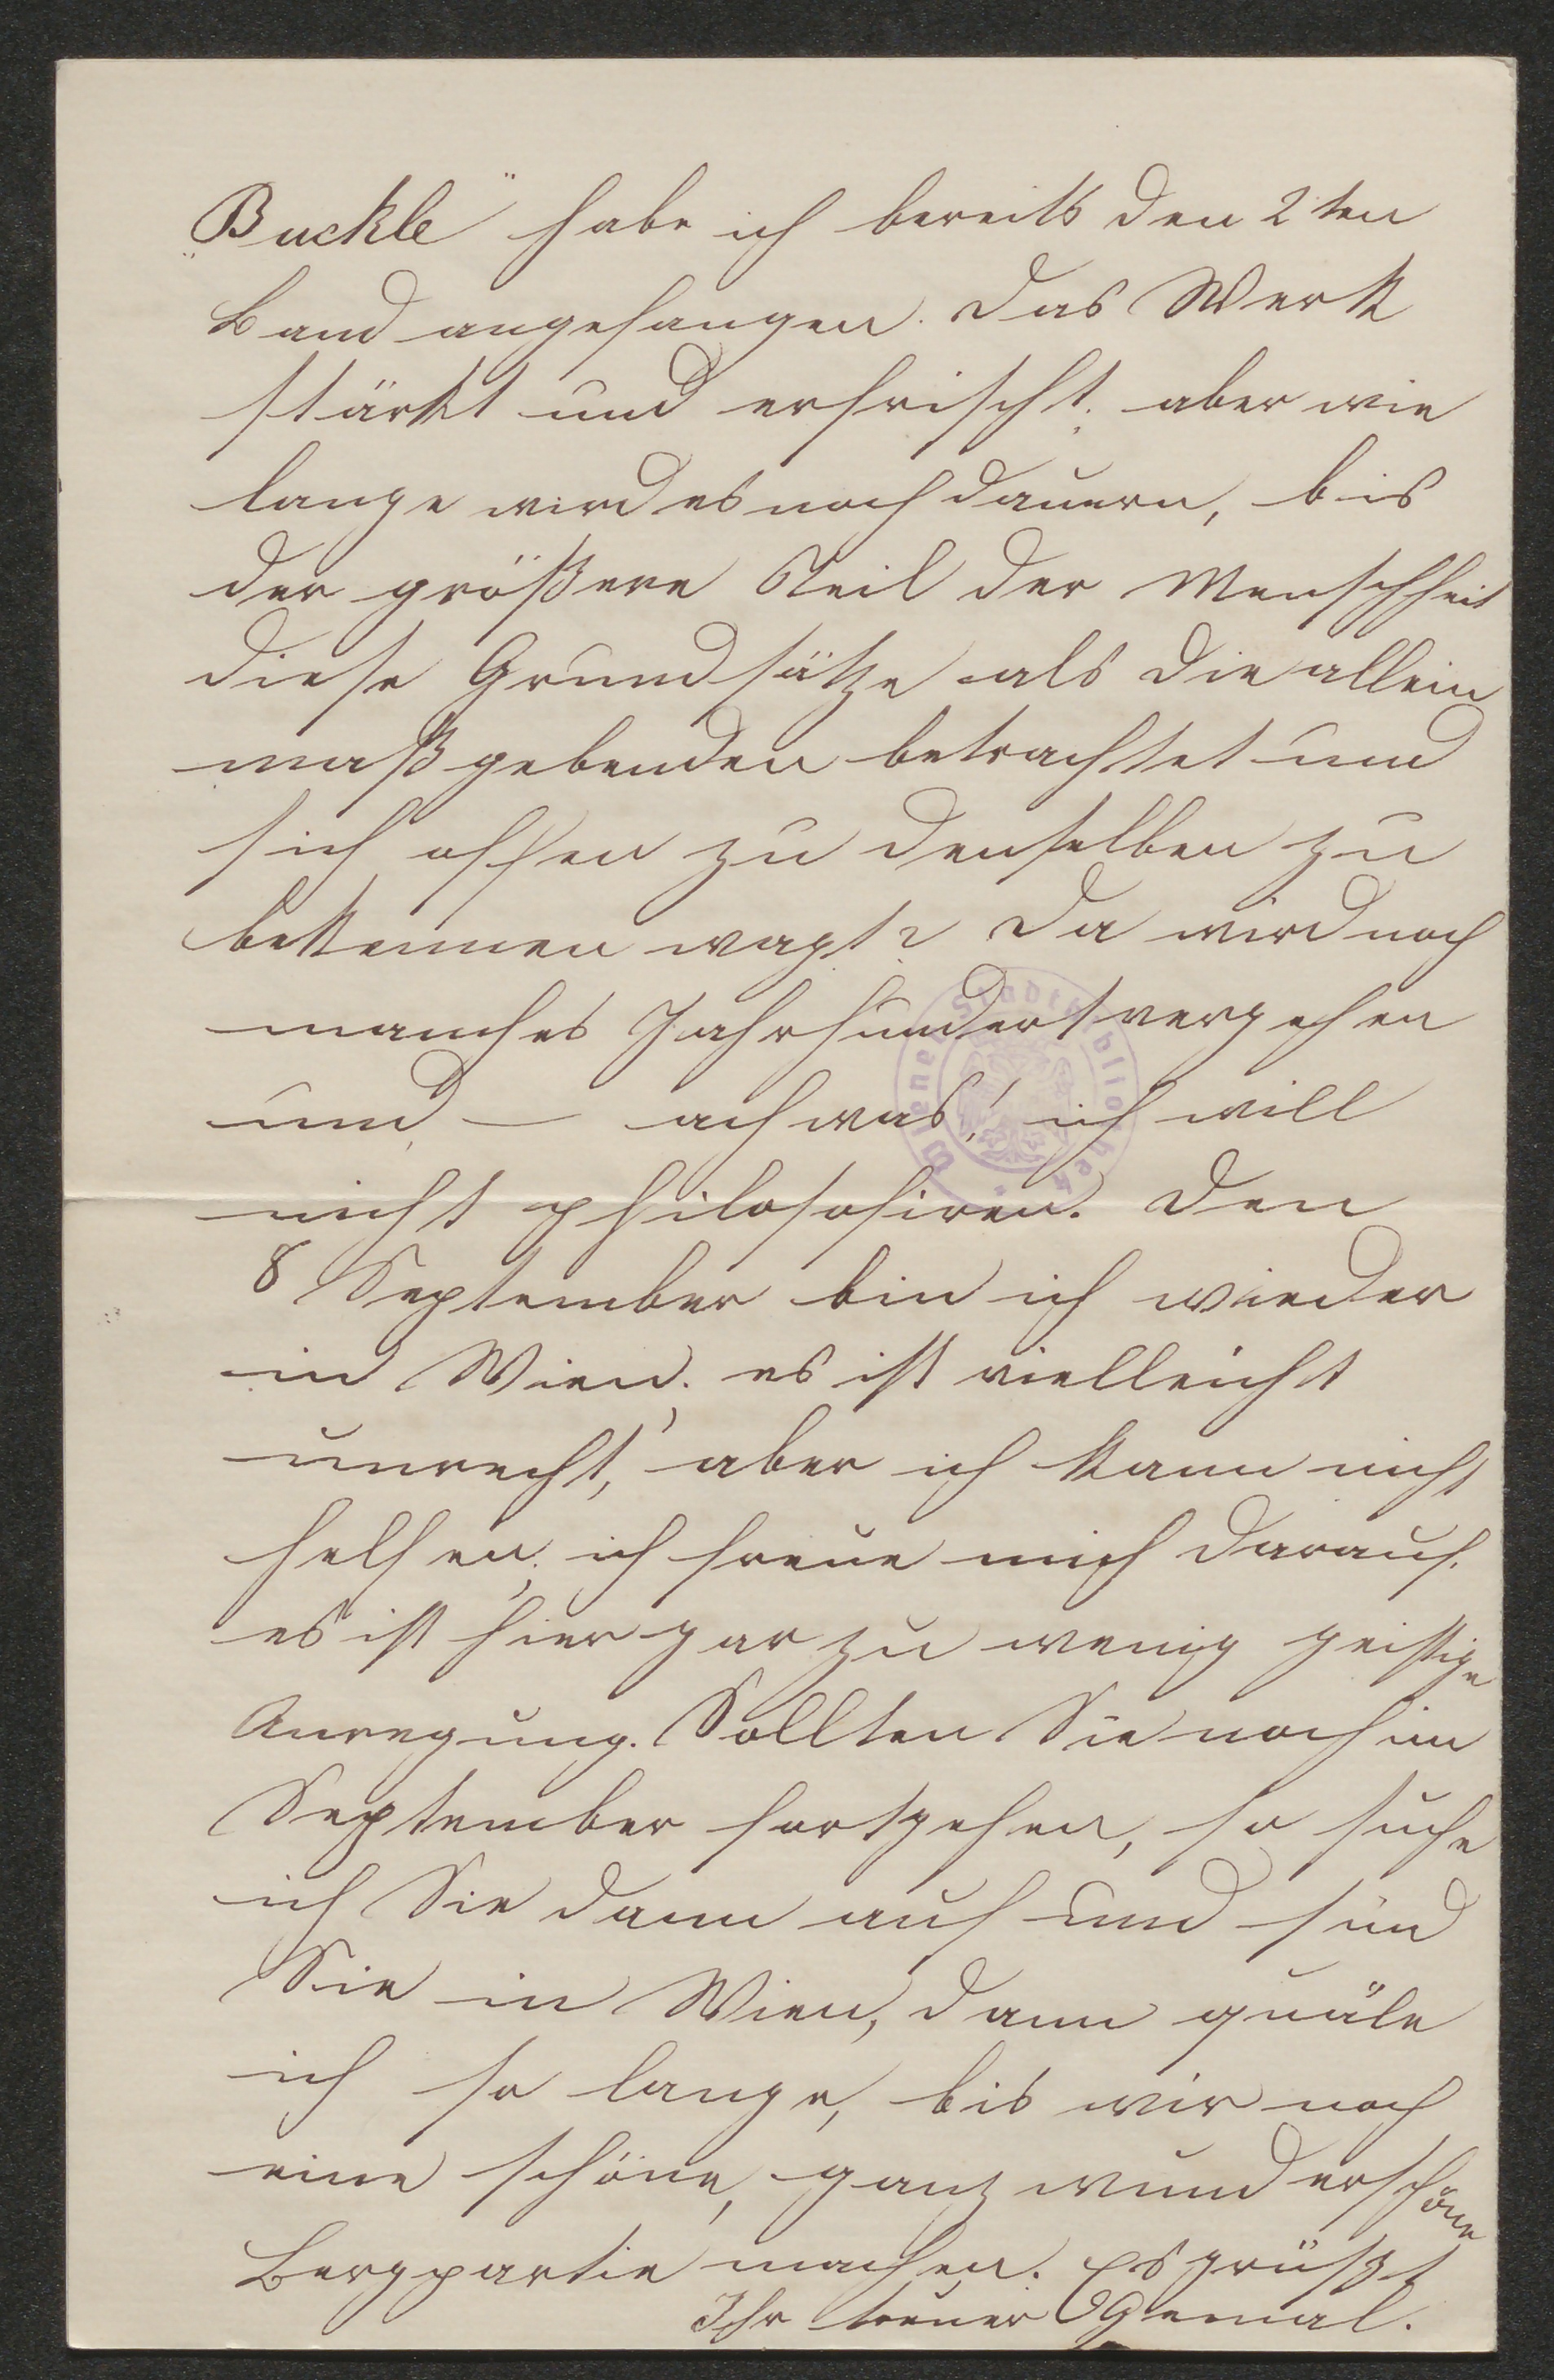 „Buckle“ habe ich bereits den 2ten
Band angefangen. Das Werk
stärkt und erfrischt; aber wie
lange wird es noch dauern, bis
der größere Teil der Menschheit
diese Grundsätze als die allein
maßgebenden betrachtet und
sich offen zu denselben zu
bekennen wagt? Da wird noch
manches Jahrhundert vergehen
und – ach was! ich will
nicht philosofiren. Den
8 September bin ich wieder
in Wien; es ist vielleicht
unrecht, aber ich kann nicht
helfen; ich freue mich darauf.
es ist hier gar zu wenig geistige
Anregung. Sollten Sie noch im
September fortgehen, so suche
ich Sie dann auf und sind
Sie in Wien, dann quäle
ich so lange, bis wir noch
eine schöne, ganz wunderschöne
Bergpartie machen. Es grüßt
Ihr treuer
Wiener Stadtbibliothek